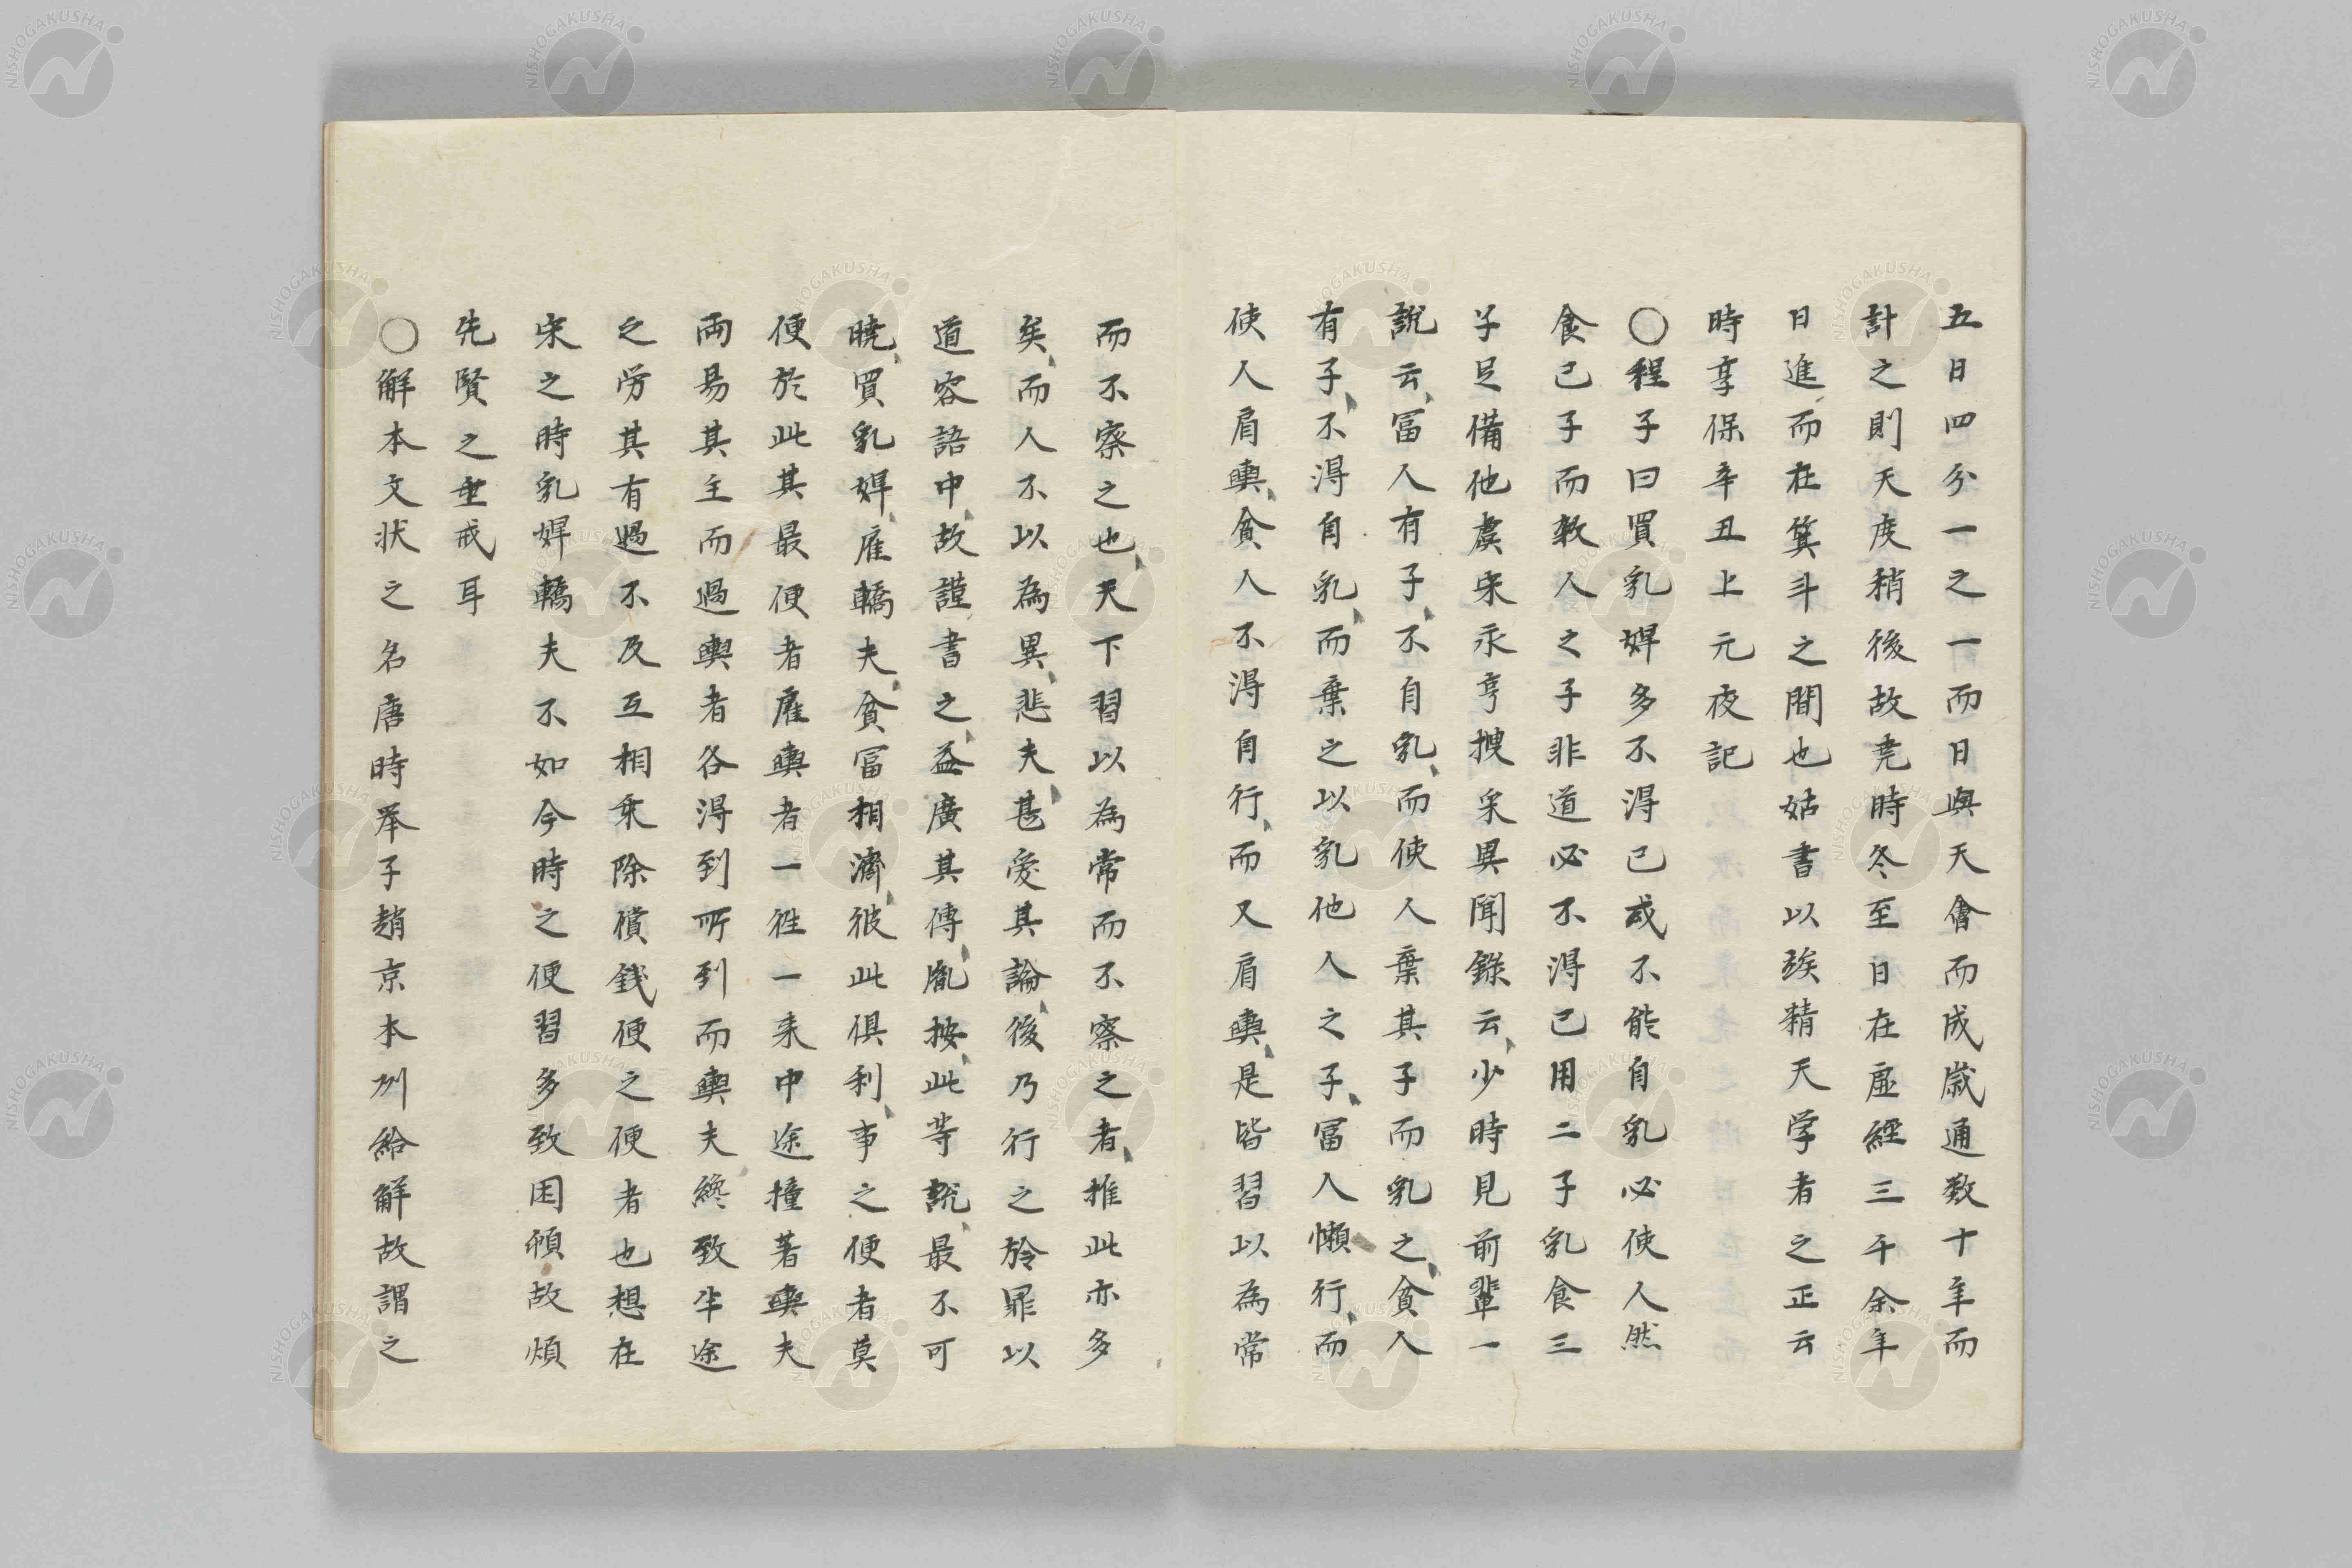 五日四分一之一而日與天會而成歳通数十年而
計之則天度稍後故尭時冬至日在虚経三千余年
日進而在箕斗之間也姑書以俟精天学者之正云
時享保辛丑上元夜記
○程子曰買乳婢多不得已或不能自乳必使人然
食己子而教人之子非道必不得已用二子乳食三
子足備他虞宋永亨搜采異聞録云少時見前輩一
説云冨人有子不自乳而使人棄其子而乳之貧人
有子不得自乳而棄之以乳他人之子冨人懶行而
使人肩輿貧人不得自行而又肩輿是皆習以為常
而不察之也天下習以為常而不察之者推此亦多
矣而人不以為異悲夫甚愛其論後乃行之於晁以
道容語中故謹書之益廣其傳胤按此等説最不可
曉買乳婢雇轎夫貧冨相濟彼此倶利事之便者莫
便於此其最便者雇輿者一徃一来中途撞著輿夫
両易其主而過輿者各得到所到而輿夫終致半途
之労其有過不及互相乗除償錢便之便者也想在
宋之時乳婢轎夫不如今時之便習多致困頓故煩
先賢之垂戒耳
○解本文状之名唐時挙子趙京本州給解故謂之